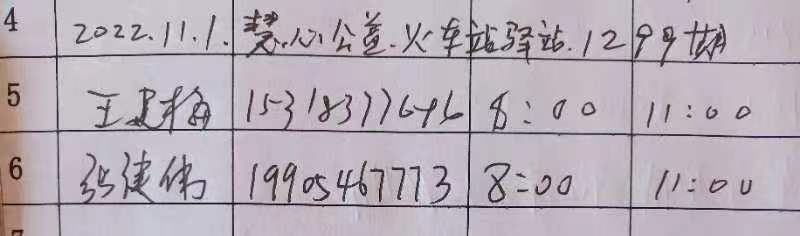 4 2022.11.1. 慧心公益.火车站驿站.1299期
5 王建梅 15318377646 8:00 11:00
6 张健伟 19905467773 8:00 11:00